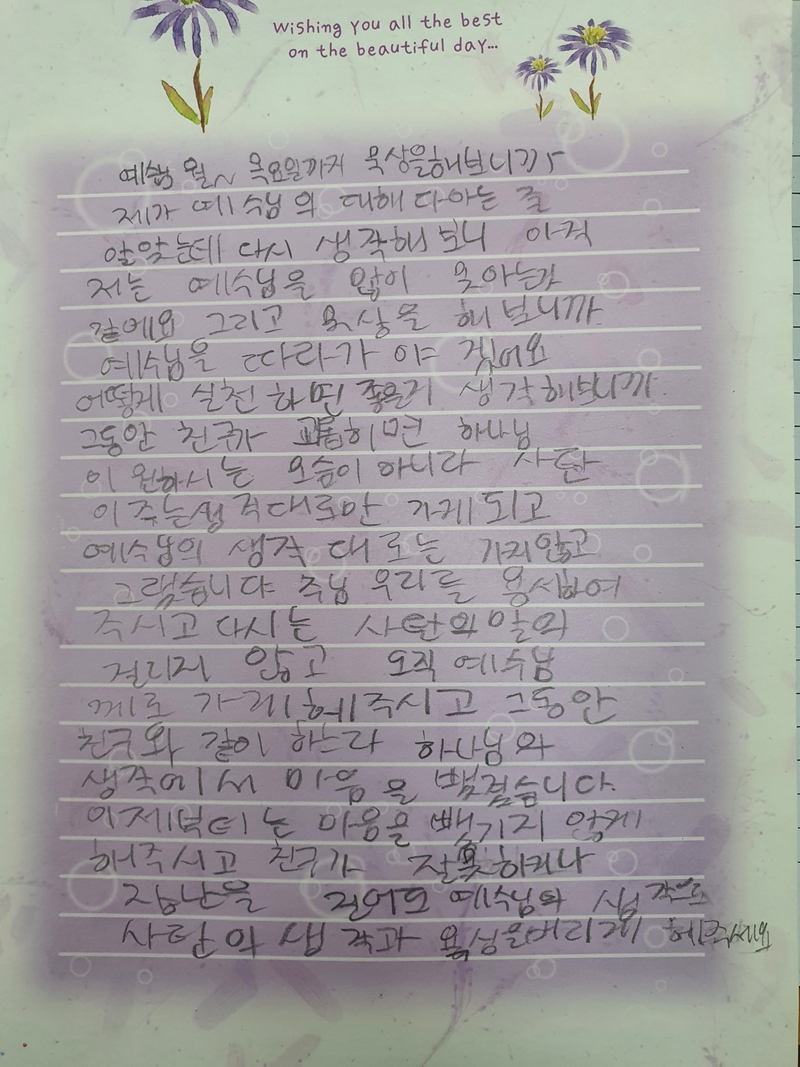 Wishing you all the best
on the beautiful day...
월~ 목요일까지 묵상을해보니까
제가 예수님의 대해 다아는 줄
알앗는데 다시 생각해 보니 아직
저는 예수님을 많이 못아는것
같에요 그리고 묵상을 해 보니까
예수님을 따라가 야 겠어요
어떻게 실천 하면 좋은지 생각해보니까
그동안 친구가 괴롭히면 하나님
이 원하시는 모습이 아니라 사탄
이 주는생각대로만 가게 되고
예수님의 생각 대로는 가지않고
그랬습니다 주님 우리를 용서하여
주시고 다시는 사탄의 말의
걸리지 않고 오직 예수님
께로 가게 헤주시고 그동안
친구와 같이 하느라 하나님와
생각에서 마음을 뺏겼습니다.
이제부터는 마음을 뺏기지 않게
해주시고 친구가 잘못하거나
장난을 걸어도 예수님의
사탄의 생각과 욕심을버리게 헤주세요